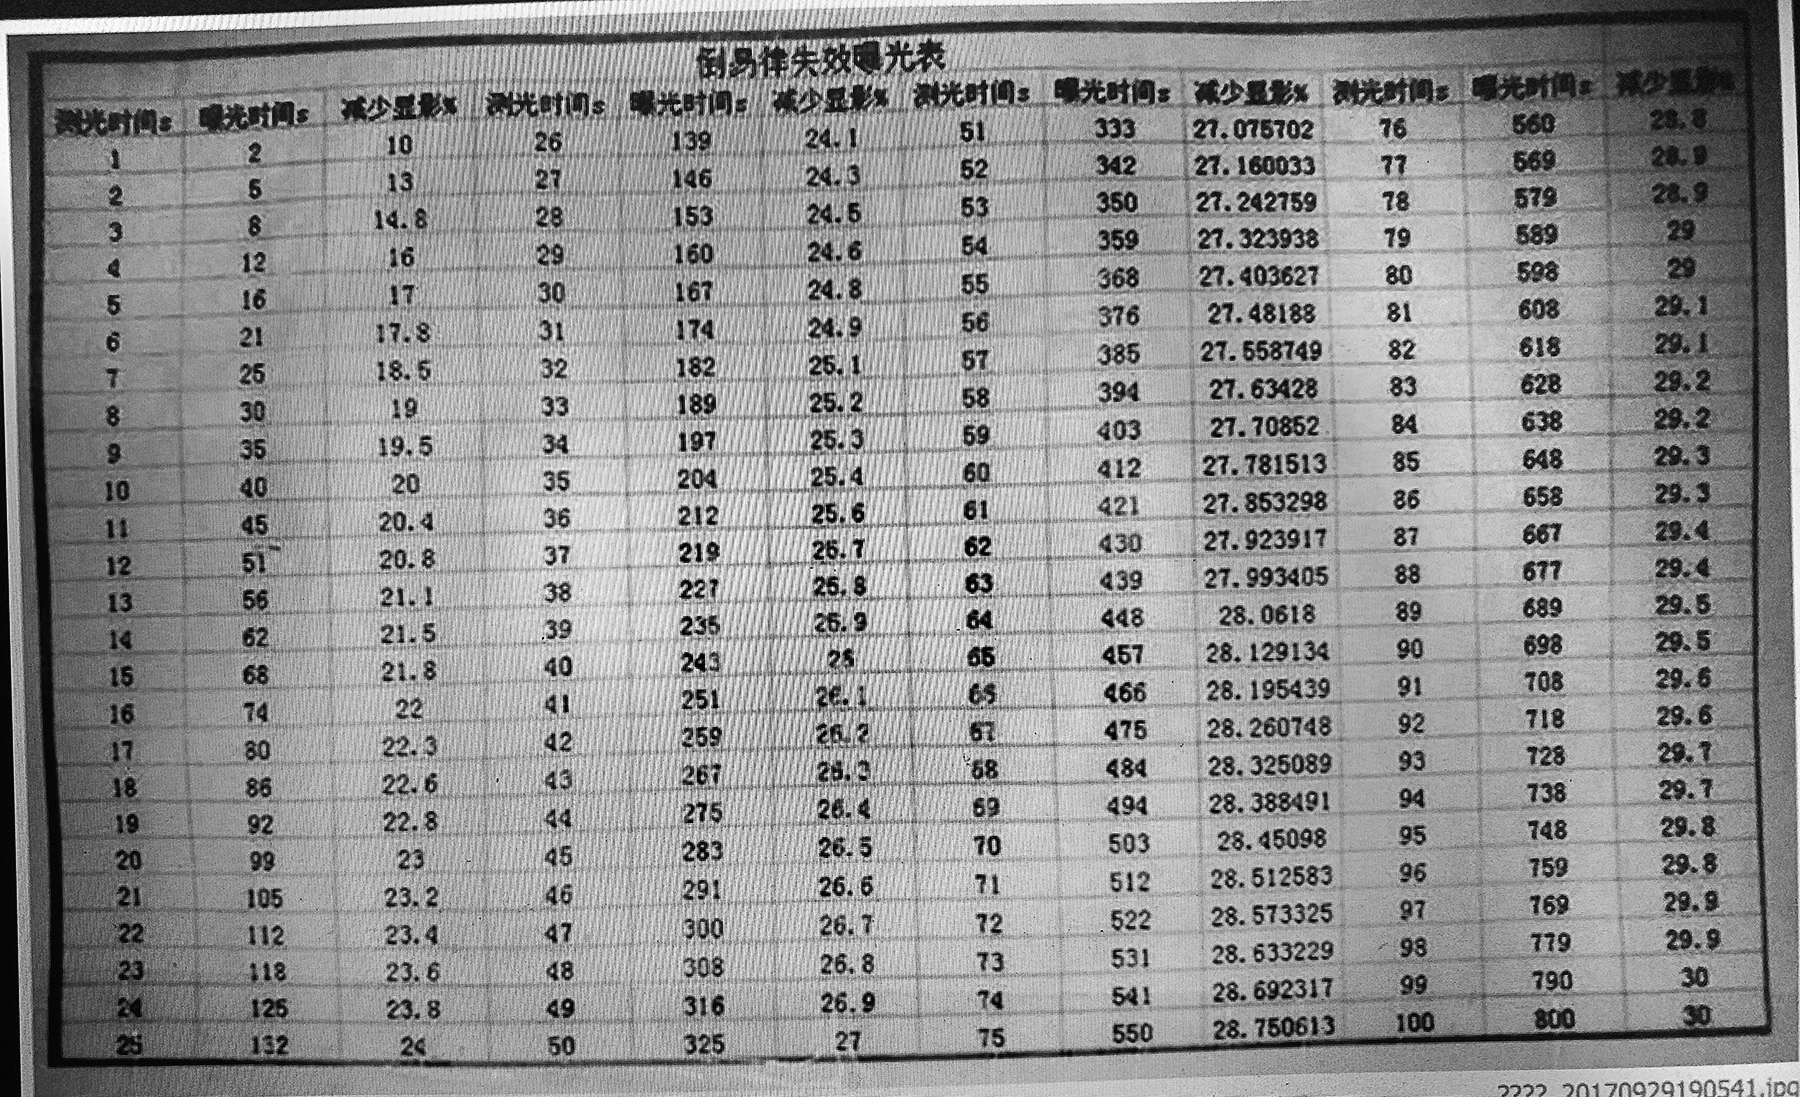 倒易律失效曝光表
测光时间s 曝光时间s 减少显影% 测光时间s 曝光时间s 减少显影% 测光时间s 曝光时间s 减少显影% 测光时间s 曝光时间s 减少显影%
1 2 10 26 139 24.1 51 333 27.075702 76 560 28.8
2 5 13 27 146 24.3 52 342 27.160033 77 569 28.9
3 8 14.8 28 153 24.5 53 350 27.242759 78 579 28.9
4 12 16 29 160 24.6 54 359 27.323938 79 589 29
5 16 17 30 167 24.8 55 368 27.403627 80 598 29
6 21 17.8 31 174 24.9 56 376 27.48188 81 608 29.1
7 25 18.5 32 182 25.1 57 385 27.558749 82 618 29.1
8 30 19 33 189 25.2 58 394 27.63428 83 628 29.2
9 35 19.5 34 197 25.3 59 403 27.70852 84 638 29.2
10 40 20 35 204 25.4 60 412 27.781513 85 648 29.3
11 45 20.4 36 212 25.6 61 421 27.853298 86 658 29.3
12 51 20.8 37 219 25.7 62 430 27.923917 87 667 29.4
13 56 21.1 38 227 25.8 63 439 27.993405 88 677 29.4
14 62 21.5 39 235 25.9 64 448 28.0618 89 689 29.5
15 68 21.8 40 243 26 65 457 28.129134 90 698 29.5
16 74 22 41 251 26.1 66 466 28.195439 91 708 29.6
17 80 22.3 42 259 26.2 67 475 28.260748 92 718 29.6
18 86 22.6 43 267 26.3 68 484 28.325089 93 728 29.7
19 92 22.8 44 275 26.4 69 494 28.388491 94 738 29.7
20 99 23 45 283 26.5 70 503 28.45098 95 748 29.8
21 105 23.2 46 291 26.6 71 512 28.512583 96 759 29.8
22 112 23.4 47 300 26.7 72 522 28.573325 97 769 29.9
23 118 23.6 48 308 26.8 73 531 28.633229 98 779 29.9
24 125 23.8 49 316 26.9 74 541 28.692317 99 790 30
25 132 24 50 325 27 75 550 28.750613 100 800 30
????_20170929190541.jpg